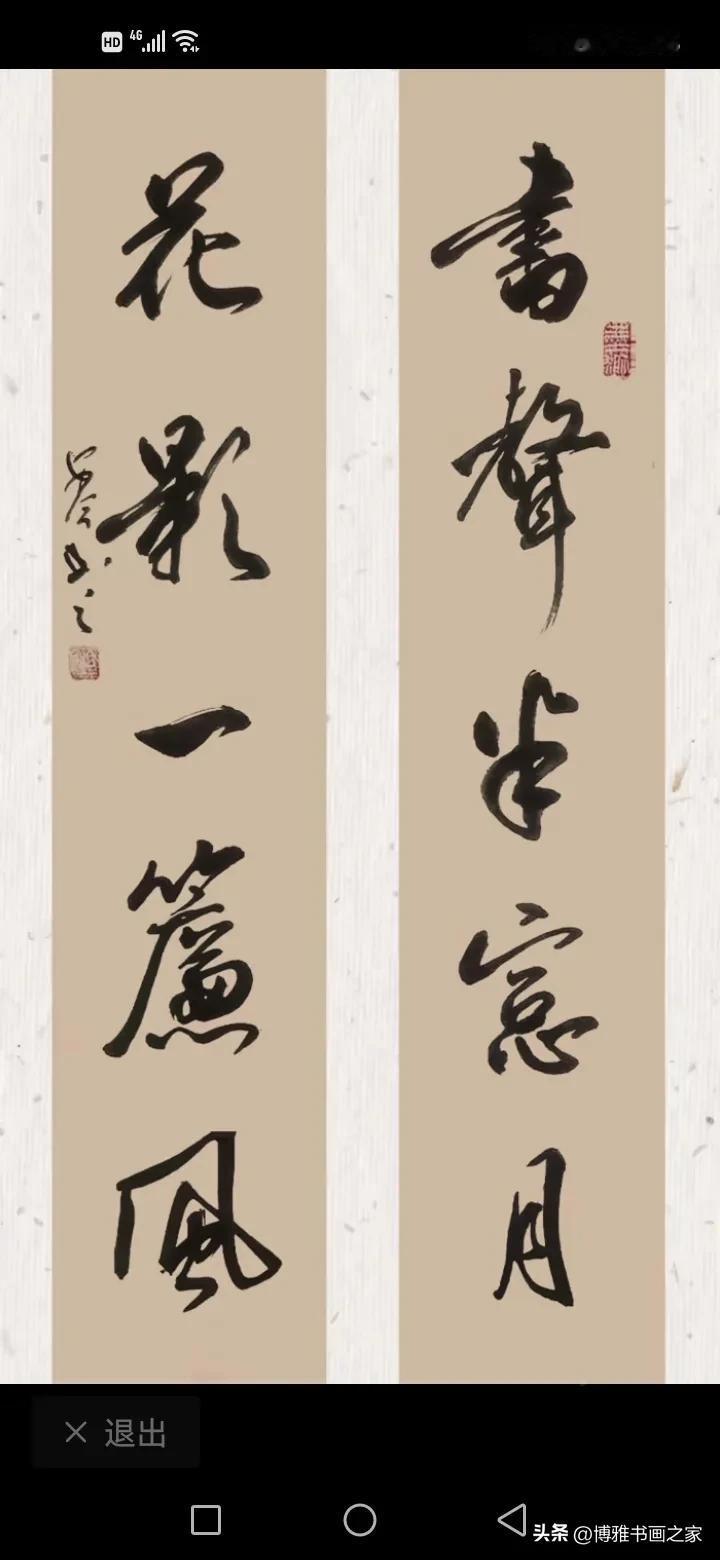 HD 4G
書聲半窓月
花影一簾風
書之
退出
头条 @博雅书画之家